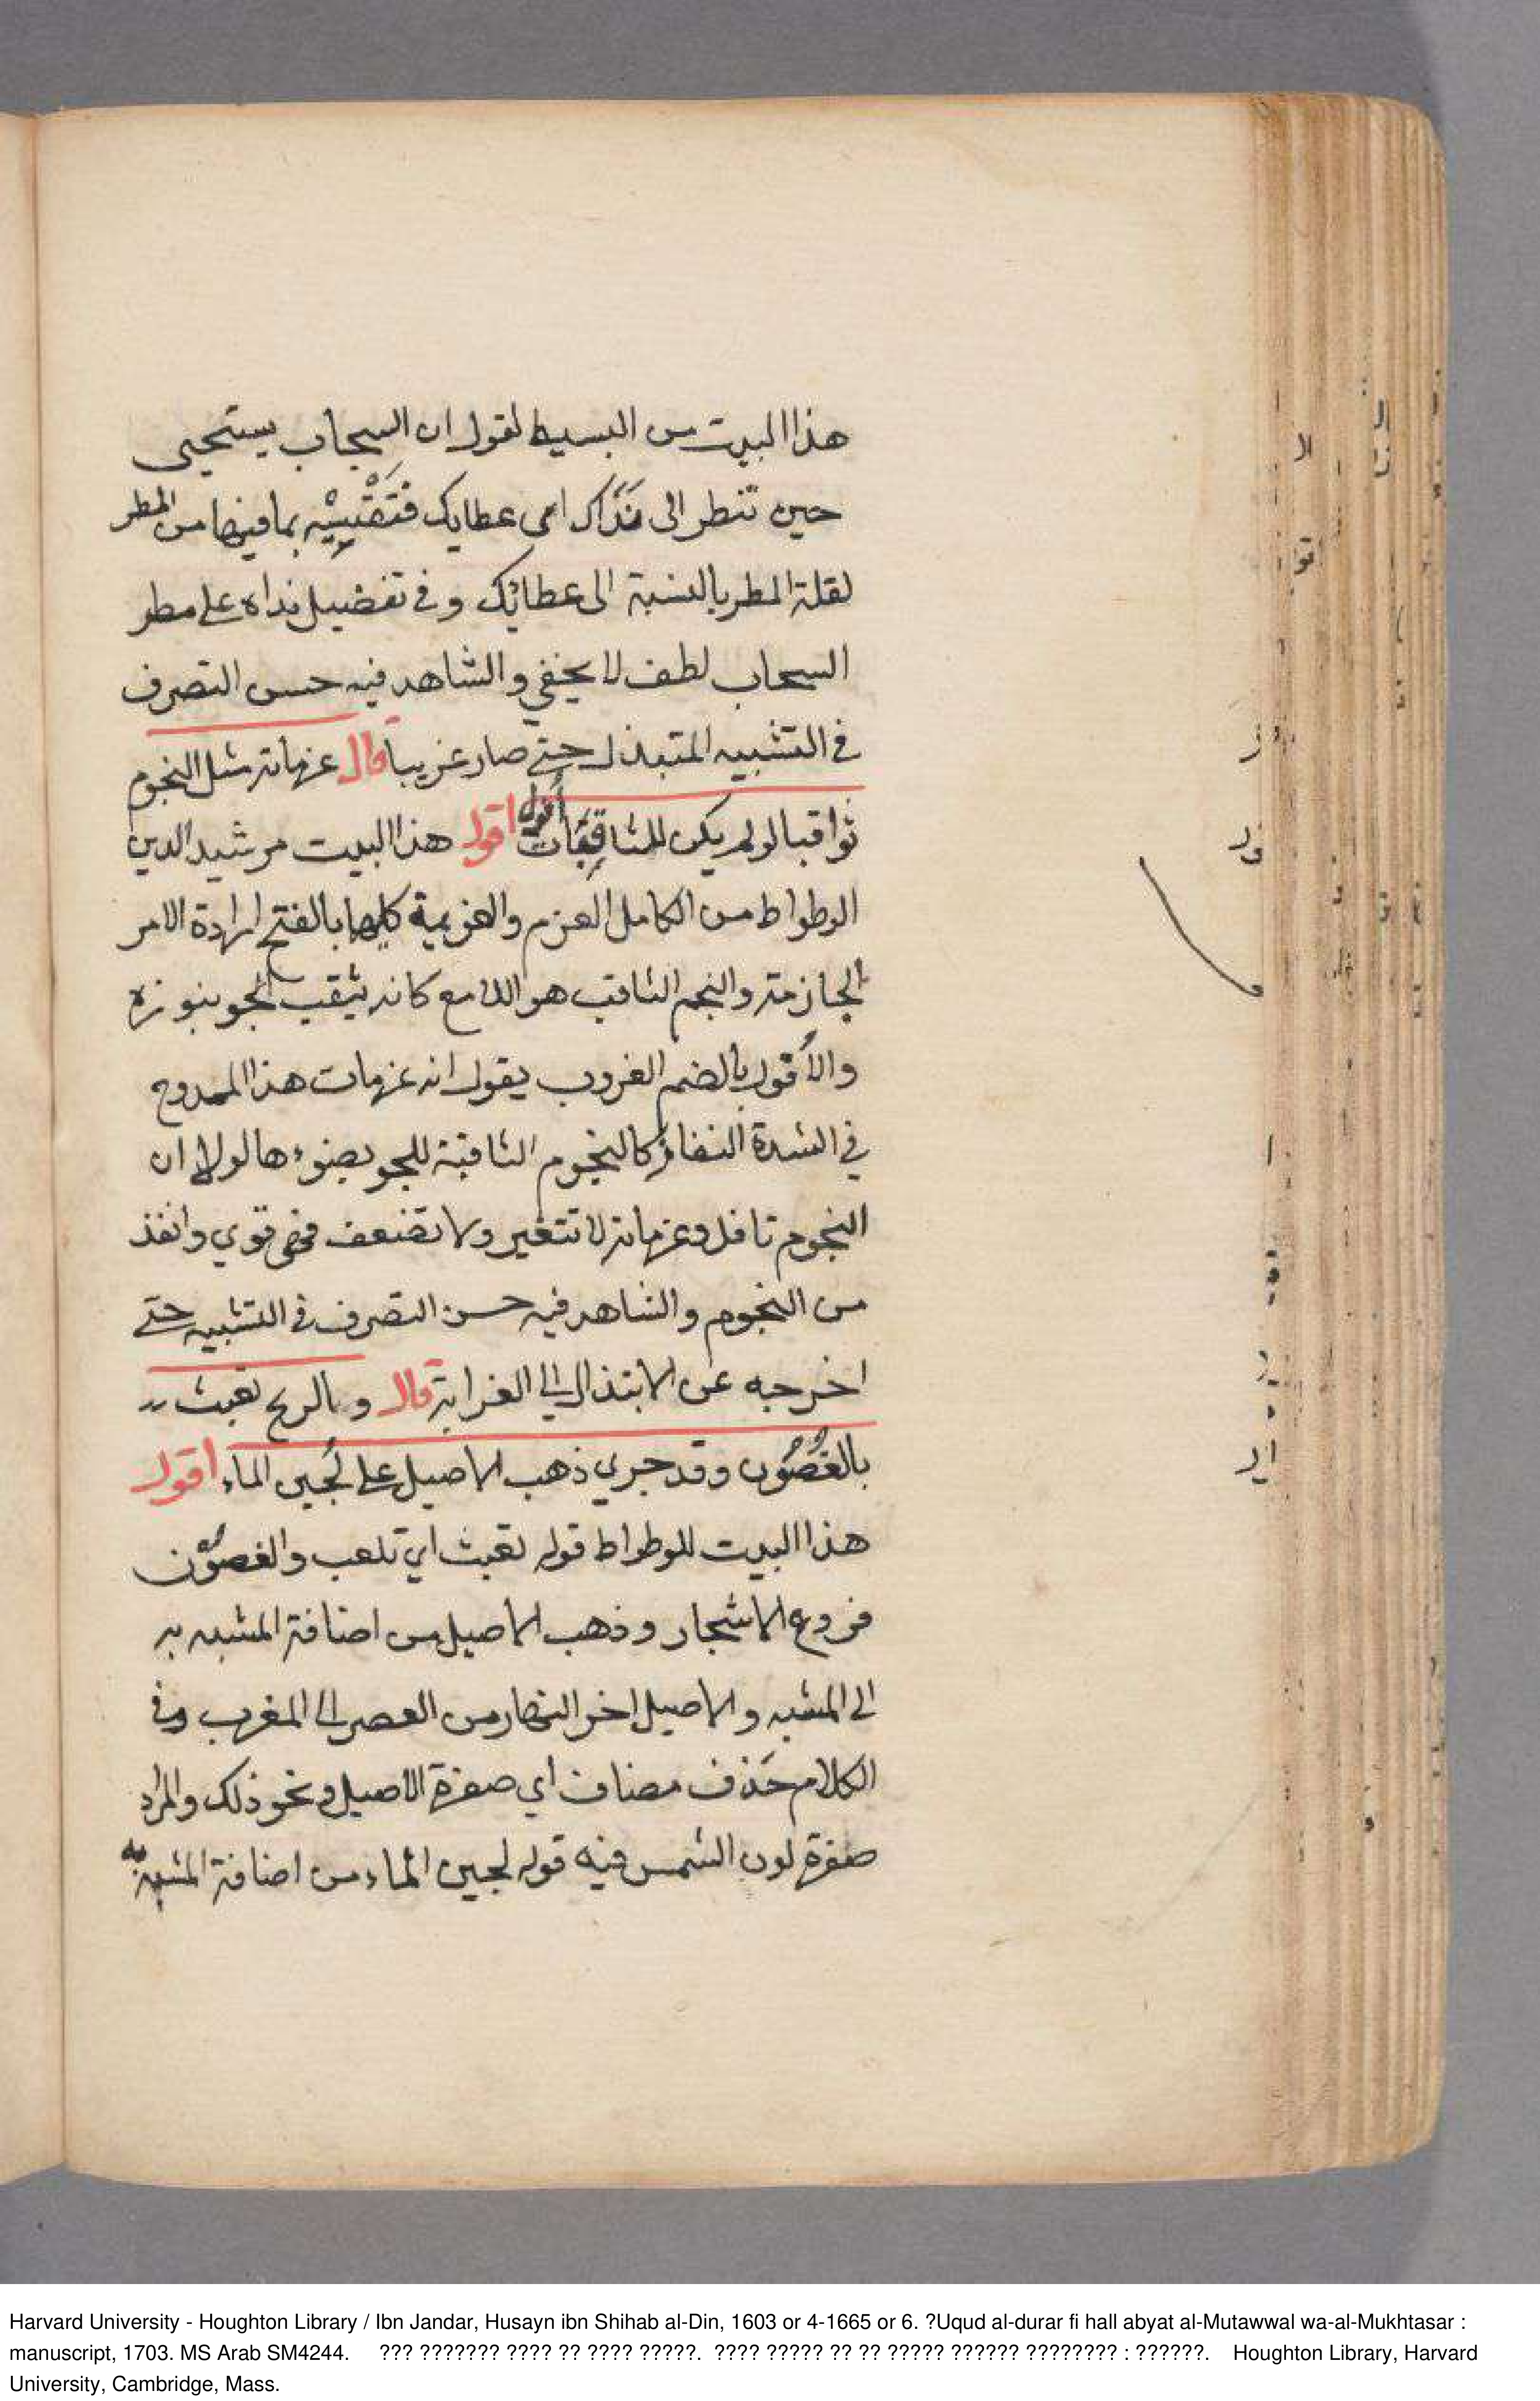 هذا البيت من البسيط لقول ان السحاب يستحيى
حين تنطر الى نَدَاك اى عطايك فتَقْيِسْه بما فيها من المطر
لقلة المطر بالنسبة الى عطائك وفي تفضيل نداه على مطر
السحاب لطف لا يخفي والشاهد فيه حسن التصرف
في التشبيه المتبذل حتى صار غريبا قال عزماته مثل النجوم
ثواقبا لو لم يكن للثاقِبَات أُفول اقول هذا البيت مرشيد الدين
الوطواط من الكامل العزم والعزيمة كلها بالفتح ارادة الامر
الجازمة والنجم الثاقب هو اللامع كانه يثقب الجو بنوره
والأُفول بالضم الغروب يقول انه عزمات هذا الممدوح
في الشدة النفاذ كالنجوم الثاقبة للجو بضوءها لولا ان
النجوم تافل وعزماته لا تتغير ولا تضعف فهي قوي وانفذ
من النجوم والشاهد فيه حسن التصرف في التشبيه حتى
اخرجه عن الابتذال الي الغرابة قال والريح تعبث
بالغُصُون وقد جري ذهب الاصيل على لُجين الماء اقول
هذا البيت للوطواط قوله تعبث اي تلعب والغصُون
فروع الاشجار وذهب الاصيل من اضافة المشبه به
الى المشبه والاصيل اخر النهار من العصر الى المغرب وفي
الكلام حَذف مضاف اي صفرة الاصيل ونحو ذلك والمراد
صفرة لون الشمس فيه قوله لجين الماء من اضافة المشبه به
ال
تو
ور
اير
Harvard University - Houghton Library / Ibn Jandar, Husayn ibn Shihab al-Din, 1603 or 4-1665 or 6. ?Uqud al-durar fi hall abyat al-Mutawwal wa-al-Mukhtasar :
manuscript, 1703. MS Arab SM4244. ??? ??????? ???? ?? ???? ?????. ???? ????? ?? ?? ????? ?????? ???????? : ??????. Houghton Library, Harvard
University, Cambridge, Mass.